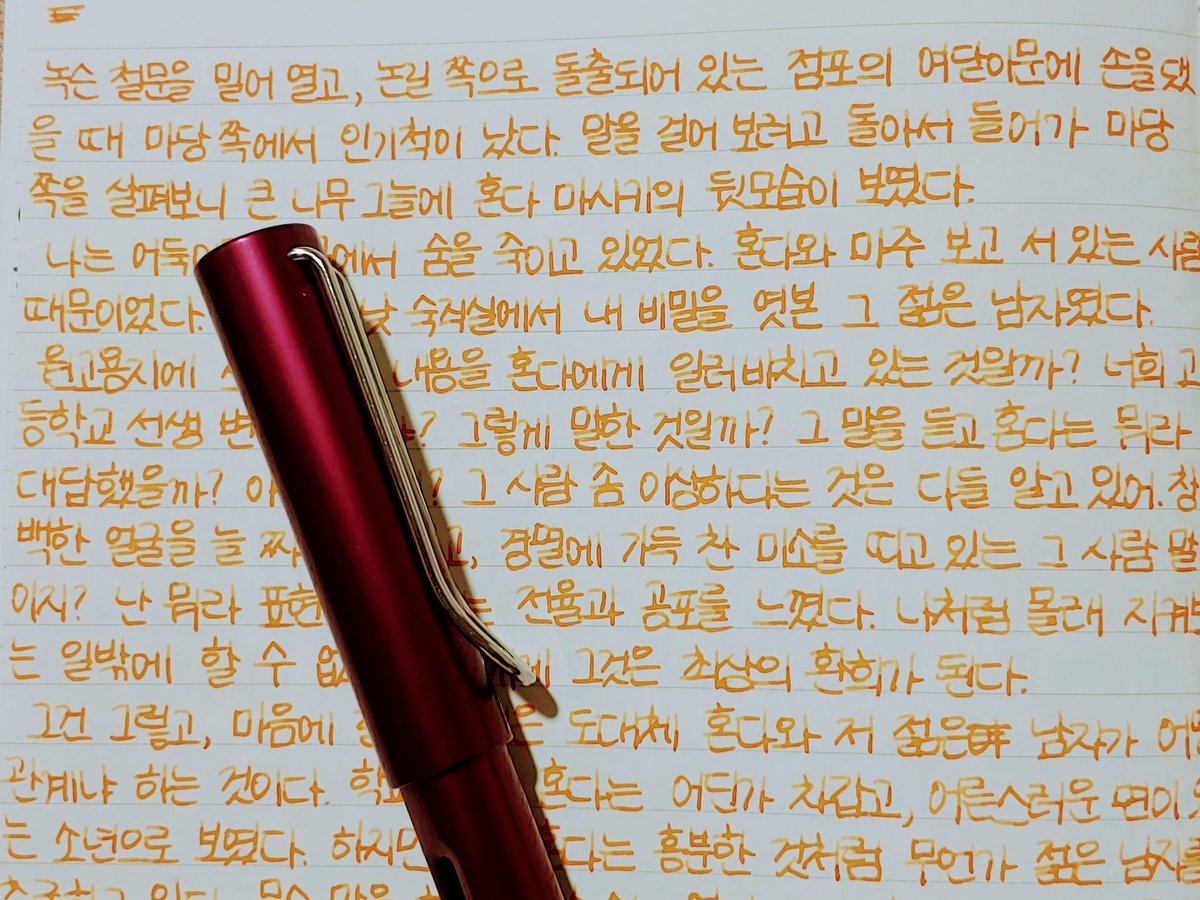 녹슨 철문을 밀어 열고, 논길 쪽으로 돌출되어 있는 점포의 여닫이문에 손을 댔
을 때 마당 쪽에서 인기척이 났다. 말을 걸어 보려고 돌아서 들어가 마당
쪽을 살펴보니 큰 나무 그늘에 혼다 마사키의 뒷모습이 보였다.
나는 숨을 죽이고 있었다. 혼다와 마주 보고 서 있는 사람
때문이었다. 숙직실에서 내 비밀을 엿본 그 젊은 남자였다.
원고용지에 내용을 혼다에게 일러바치고 있는 것일까? 너희 고
등학교 선생 그렇게 말한 것일까? 그 말을 듣고 혼다는 뭐라
대답했을까? 그 사람 좀 이상하다는 것은 다들 알고 있어. 창
백한 얼굴을 늘 경멸에 가득 찬 미소를 띠고 있는 그 사람 말
이지? 난 뭐라 전율과 공포를 느꼈다. 나처럼 몰래
는 일밖에 할 수 그것은 최상의 환희가 된다.
그건 그렇고, 마음에 도대체 혼다와 저 젊은 남자가
관계냐 하는 것이다. 혼다는 어딘가 차갑고, 어른스러운 면이
는 소년으로 보였다. 하지만 흥분한 것처럼 무언가 젊은 남자를
있다.